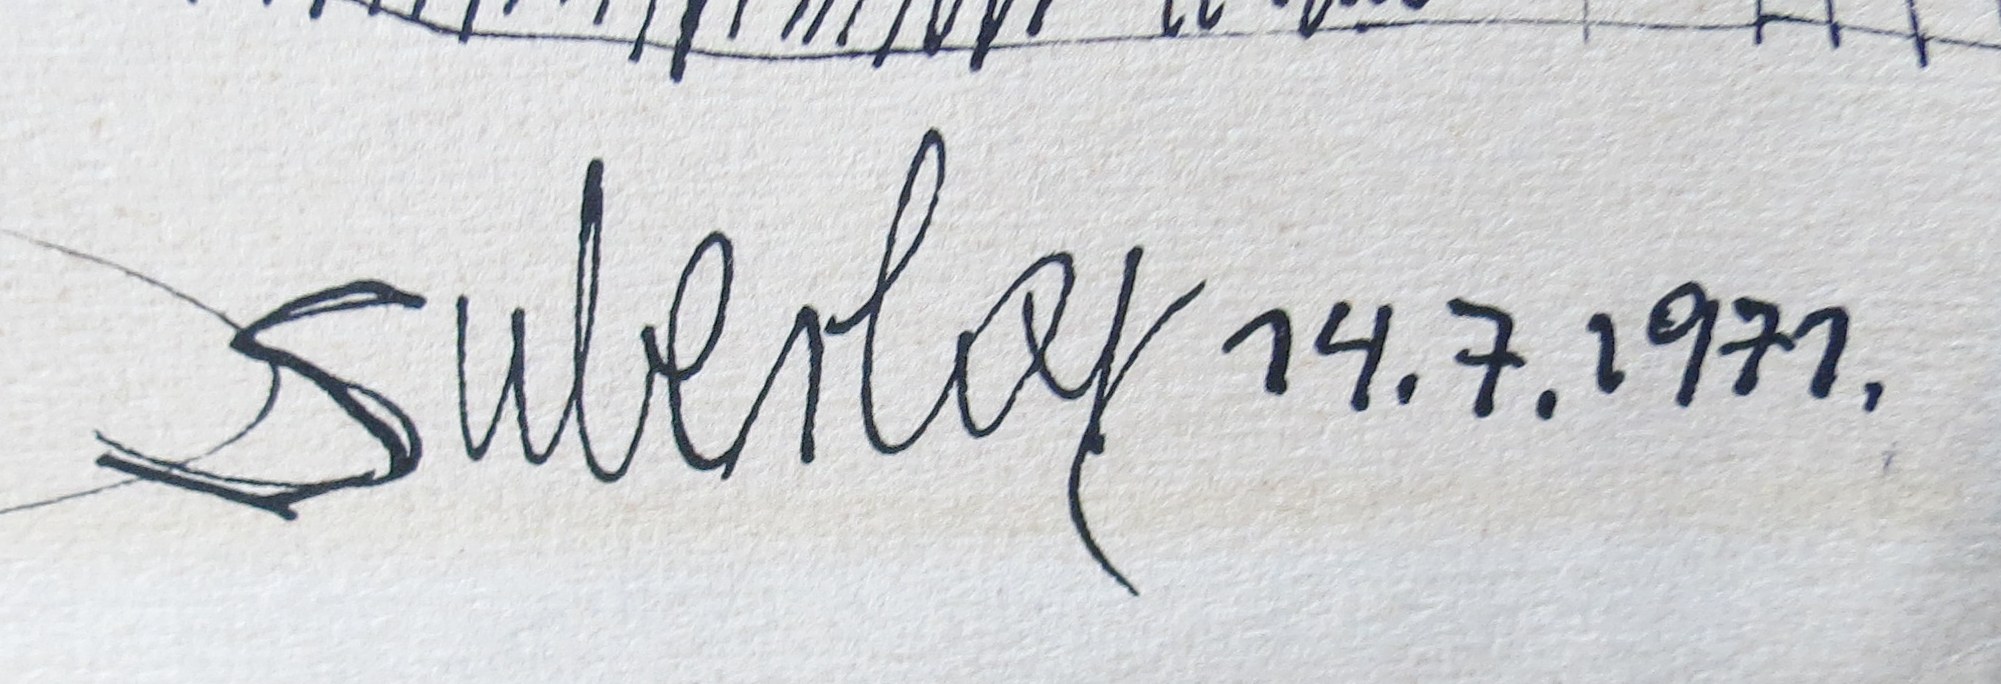 Suberlak 14.7.1971.